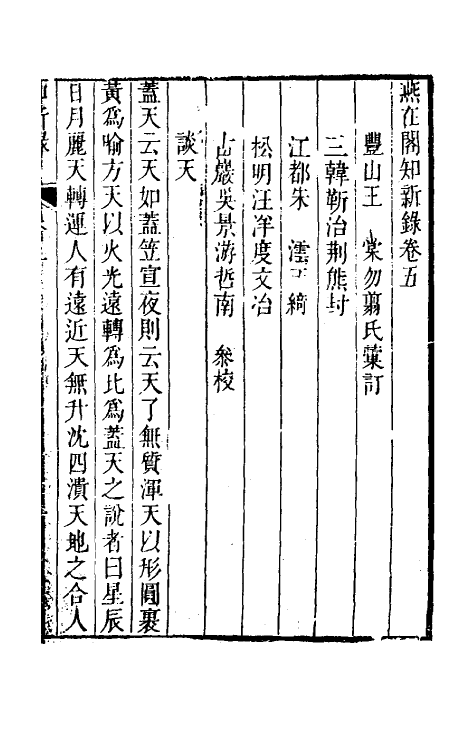 燕在閣知新錄卷五
豐山王　棠勿翦氏彙訂
三韓靳治荆熊封
江都朱　澐天綺
松明汪洋度文冶
古巖吳景游哲南　參校
談天
蓋天云天如蓋笠宣夜則云天了無質渾天以形圓裹
黃爲喻方天以火光遠轉爲比爲蓋天之說者曰星辰
日月麗天轉運人有遠近天無升沈四潰天地之合人
知新錄